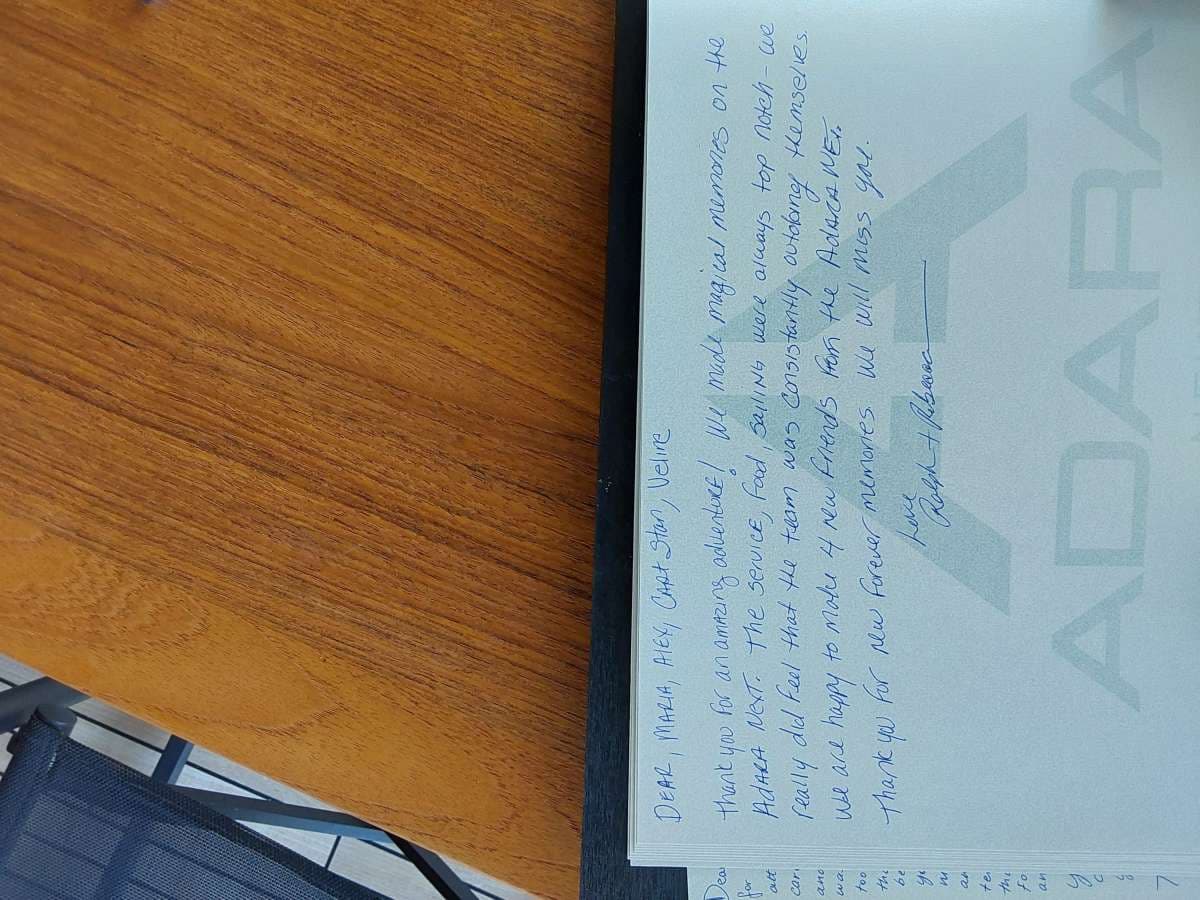 DEAR, MARIA, ALEX, CAPT Stan, Velire
thank you for an amazing adventure! We made magical memories on the
AdARA NexT. The service, food, sailing were always top notch - we
really did feel that the team was consistantly outdoing themselves.
We are happy to make 4 new friends from the AdARA NExt.
Thank you for new forever memories. We will miss you.
Love
Ralph + Rebecca
ADARA
Dear
for
att
can
and
wa
too
the
be